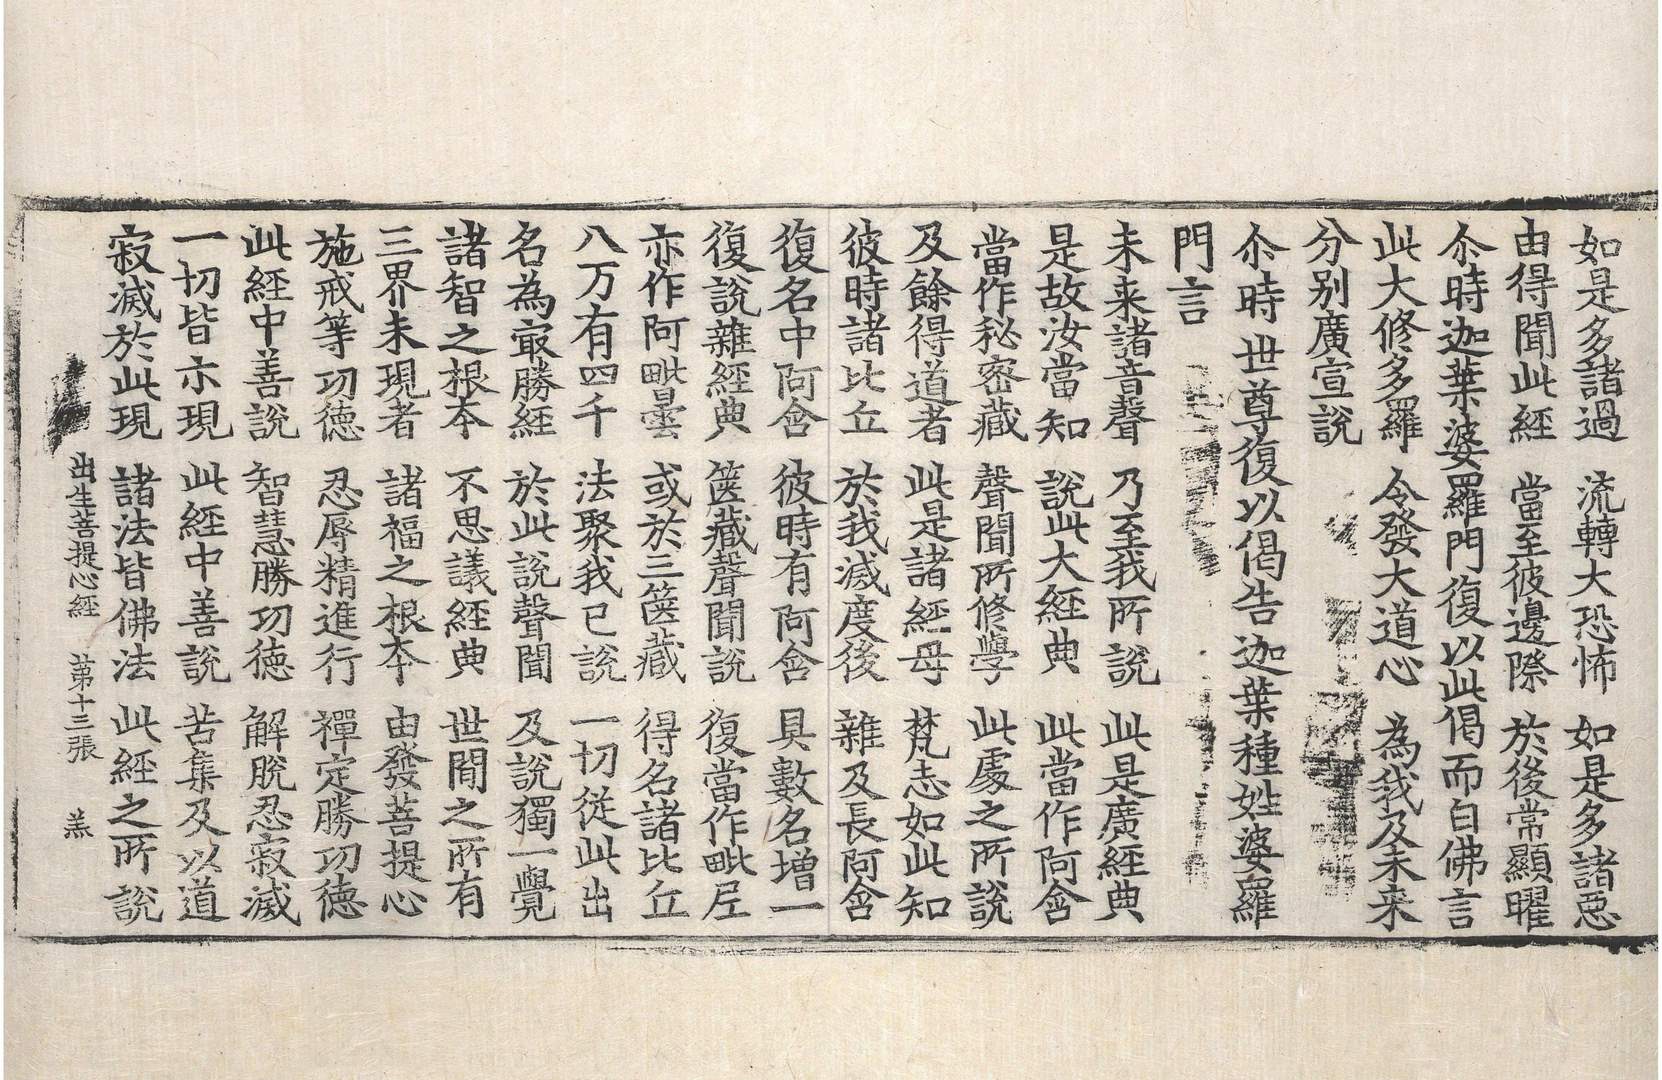 如是多諸過　流轉大恐怖　如是多諸惡
由得聞此經　當至彼邊際　於後常顯曜
尒時迦葉婆羅門復以此偈而白佛言
此大修多羅　令發大道心　為我及未来
分别廣宣説
尒時世尊復以偈告迦葉種姓婆羅
門言
未来諸音聲　乃至我所説　此是廣經典
是故汝當知　説此大經典　此當作阿含
當作秘密藏　聲聞所修學　此處之所説
及餘得道者　此是諸經母　梵志如此知
彼時諸比丘　於我滅度後　雜及長阿含
復名中阿含　彼時有阿含　具數名增一
復説雜經典　篋藏聲聞説　復當作毗尼
亦作阿毗曇　或於三篋藏　得名諸比丘
八万有四千　法聚我已説　一切從此出
名為冣勝經　於此説聲聞　及説獨一覺
諸智之根本　不思議經典　世間之所有
三界未現者　諸福之根本　由發菩提心
施戒等功德　忍辱精進行　禪定勝功德
此經中善説　智慧勝功德　解脱忍寂滅
一切皆示現　此經中善説　苦集及以道
寂滅於此現　諸法皆佛法　此經之所説
出生菩提心經　第十三張　羔